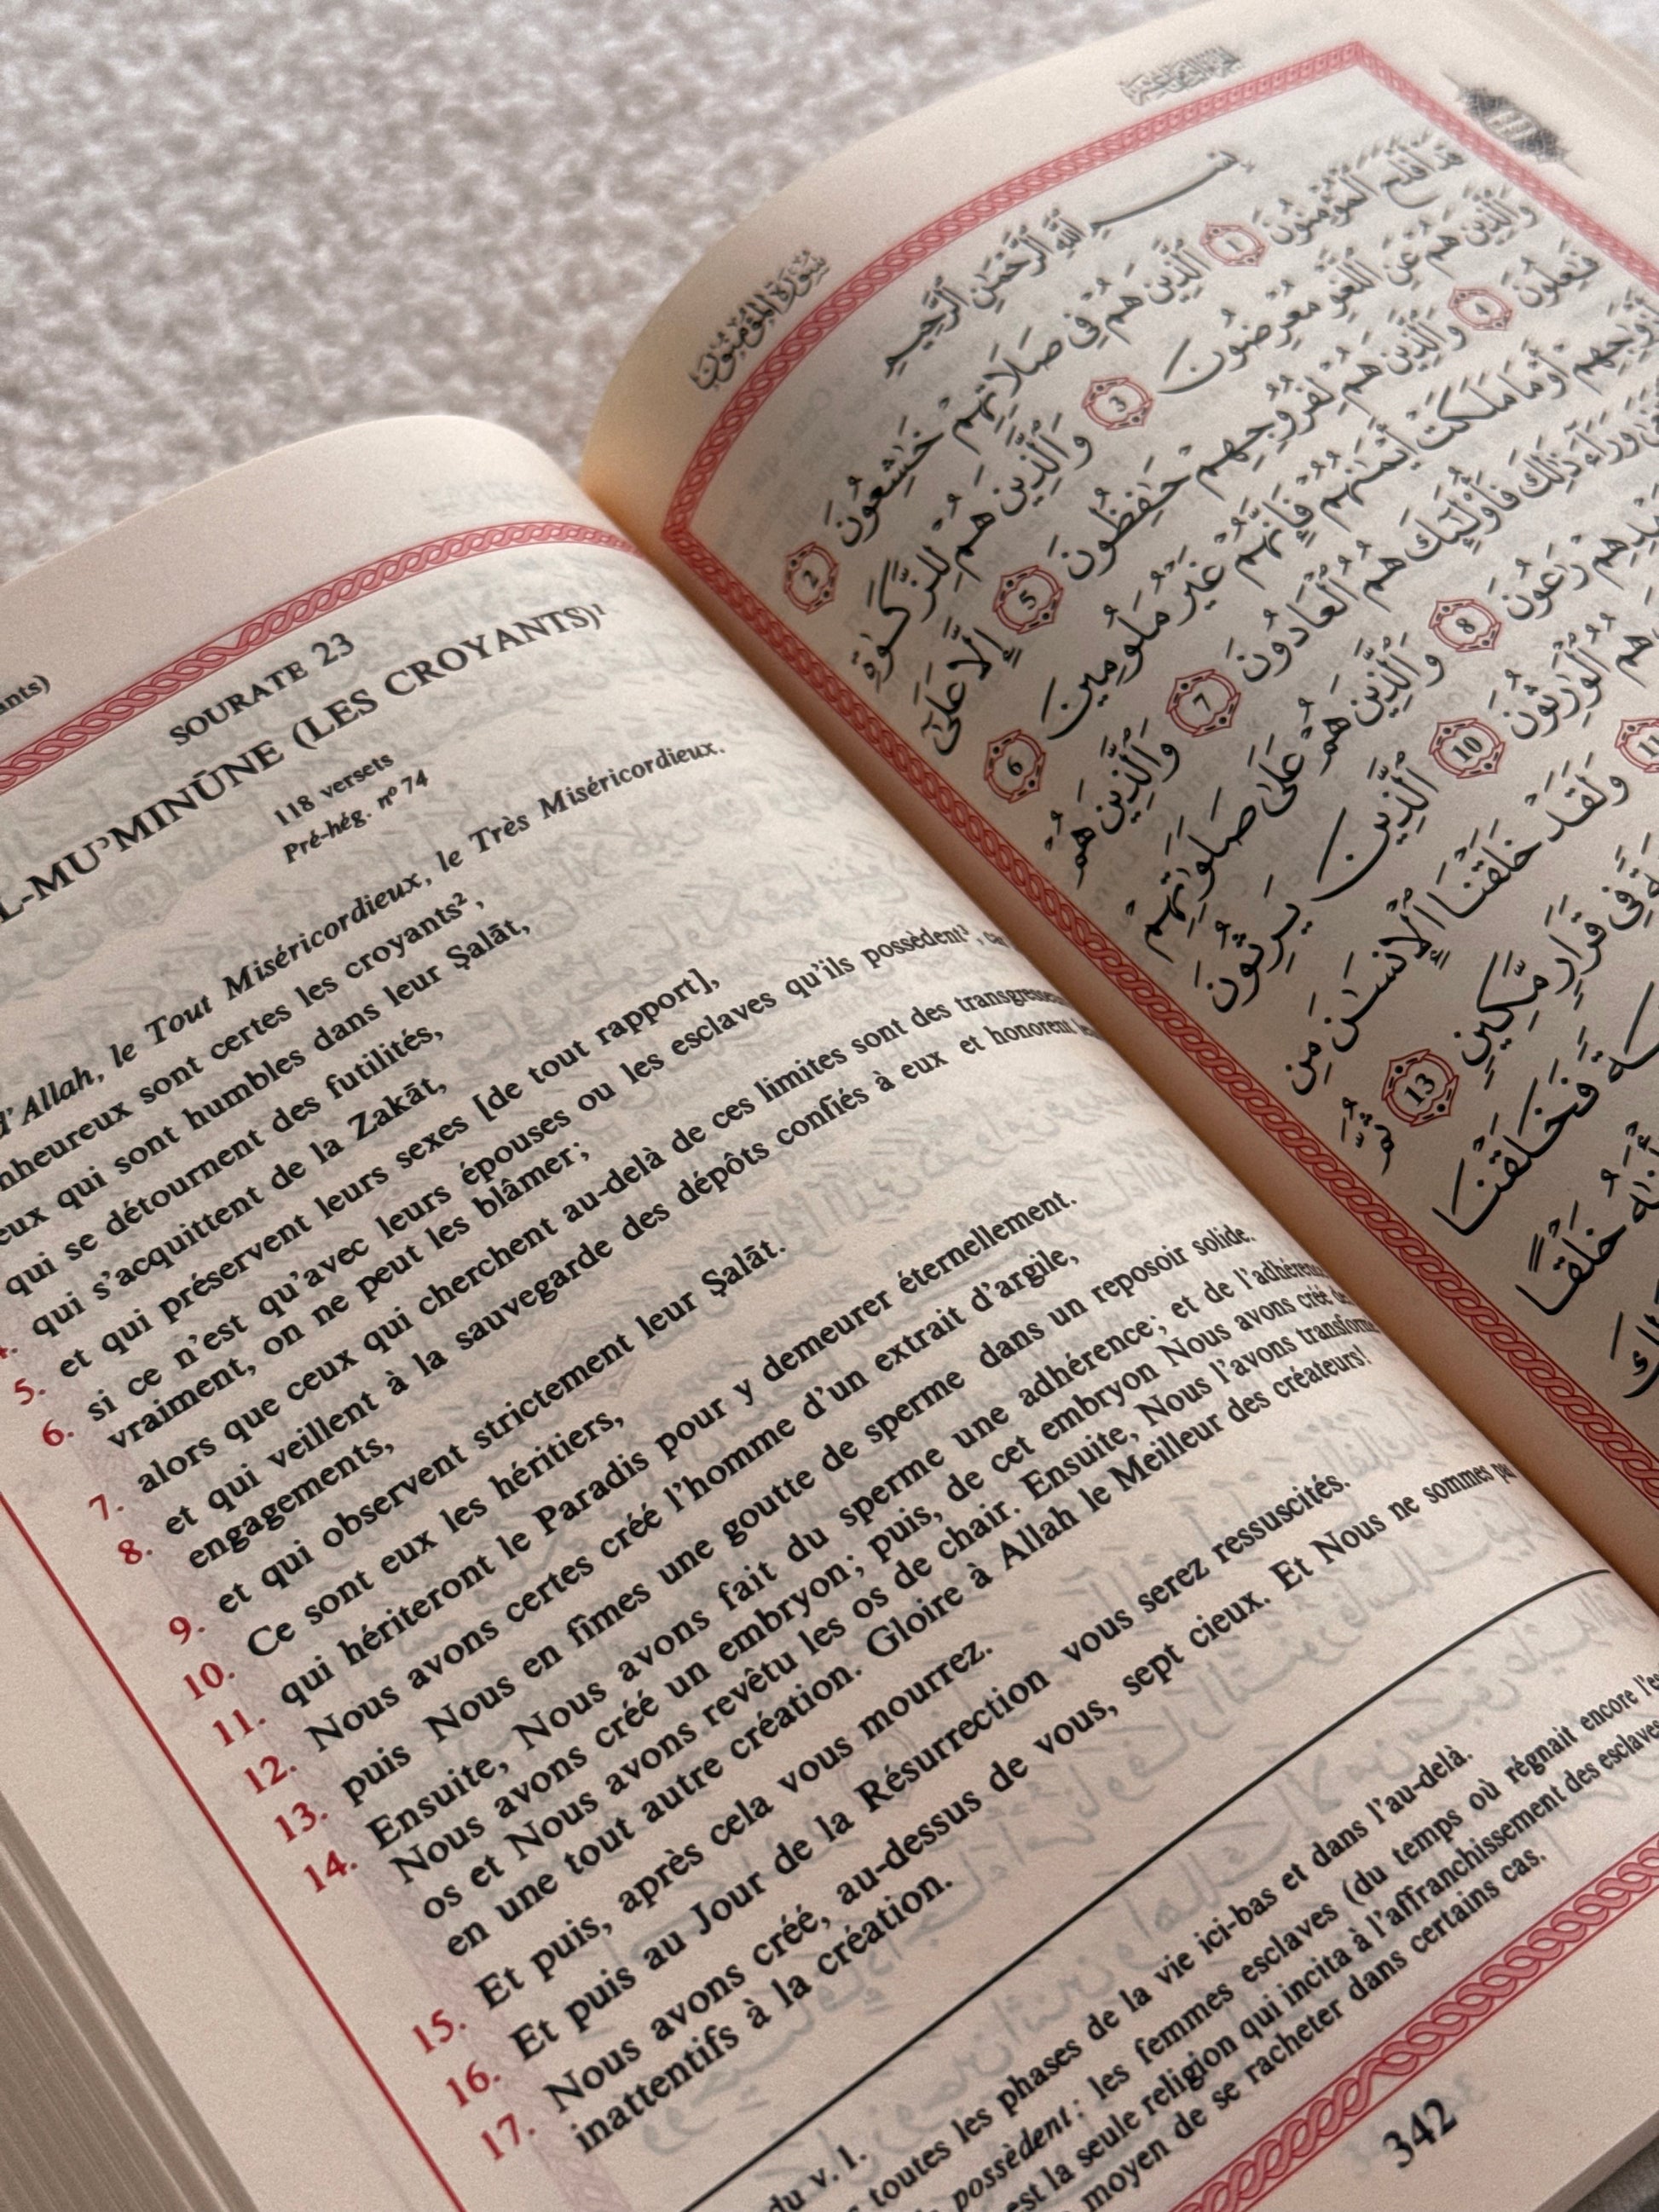 ants)
SOURATE 23
L-MU’MINŪNE (LES CROYANTS)¹
118 versets
Pré-hég. nº 74
d’Allah, le Tout Miséricordieux, le Très Miséricordieux.
nheureux sont certes les croyants²,
eux qui sont humbles dans leur Ṣalāt,
qui se détournent des futilités,
4. qui s’acquittent de la Zakāt,
5. et qui préservent leurs sexes [de tout rapport],
6. si ce n’est qu’avec leurs épouses ou les esclaves qu’ils possèdent³, car
vraiment, on ne peut les blâmer;
7. alors que ceux qui cherchent au-delà de ces limites sont des
8. et qui veillent à la sauvegarde des dépôts confiés à eux et honorent
engagements,
9. et qui observent strictement leur Ṣalāt.
10. Ce sont eux les héritiers,
11. qui hériteront le Paradis pour y demeurer éternellement.
12. Nous avons certes créé l’homme d’un extrait d’argile,
13. puis Nous en fîmes une goutte de sperme dans un reposoir solide.
14. Ensuite, Nous avons fait du sperme une adhérence; et de
Nous avons créé un embryon; puis, de cet embryon Nous avons créé
os et Nous avons revêtu les os de chair. Ensuite, Nous l’avons
en une tout autre création. Gloire à Allah le Meilleur des créateurs!
15. Et puis, après cela vous mourrez.
16. Et puis au Jour de la Résurrection vous serez ressuscités.
17. Nous avons créé, au-dessus de vous, sept cieux. Et Nous ne sommes
inattentifs à la création.
du v. 1.
toutes les phases de la vie ici-bas et dans l’au-delà.
possèdent: les femmes esclaves (du temps où régnait encore
est la seule religion qui incita à l’affranchissement des esclaves
moyen de se racheter dans certains cas.
342
سُورَةُ المُؤْمِنُونَ
بِسْمِ اللَّهِ الرَّحْمَٰنِ الرَّحِيمِ
قَدْ أَفْلَحَ الْمُؤْمِنُونَ 1 الَّذِينَ هُمْ فِي صَلَاتِهِمْ خَٰشِعُونَ 2
وَالَّذِينَ هُمْ عَنِ اللَّغْوِ مُعْرِضُونَ 3 وَالَّذِينَ هُمْ لِلزَّكَوٰةِ
فَٰعِلُونَ 4 وَالَّذِينَ هُمْ لِفُرُوجِهِمْ حَٰفِظُونَ 5 إِلَّا عَلَىٰٓ
أَوْ مَا مَلَكَتْ أَيْمَٰنُهُمْ فَإِنَّهُمْ غَيْرُ مَلُومِينَ 6
وَرَآءَ ذَٰلِكَ فَأُو۟لَٰٓئِكَ هُمُ الْعَادُونَ 7 وَالَّذِينَ هُمْ
رَٰعُونَ 8 وَالَّذِينَ هُمْ عَلَىٰ صَلَوَٰتِهِمْ
هُمُ الْوَٰرِثُونَ 10 الَّذِينَ يَرِثُونَ
11 وَلَقَدْ خَلَقْنَا الْإِنسَٰنَ مِن
فِي قَرَارٍ مَّكِينٍ 13 ثُمَّ
فَخَلَقْنَا
خَلْقًا